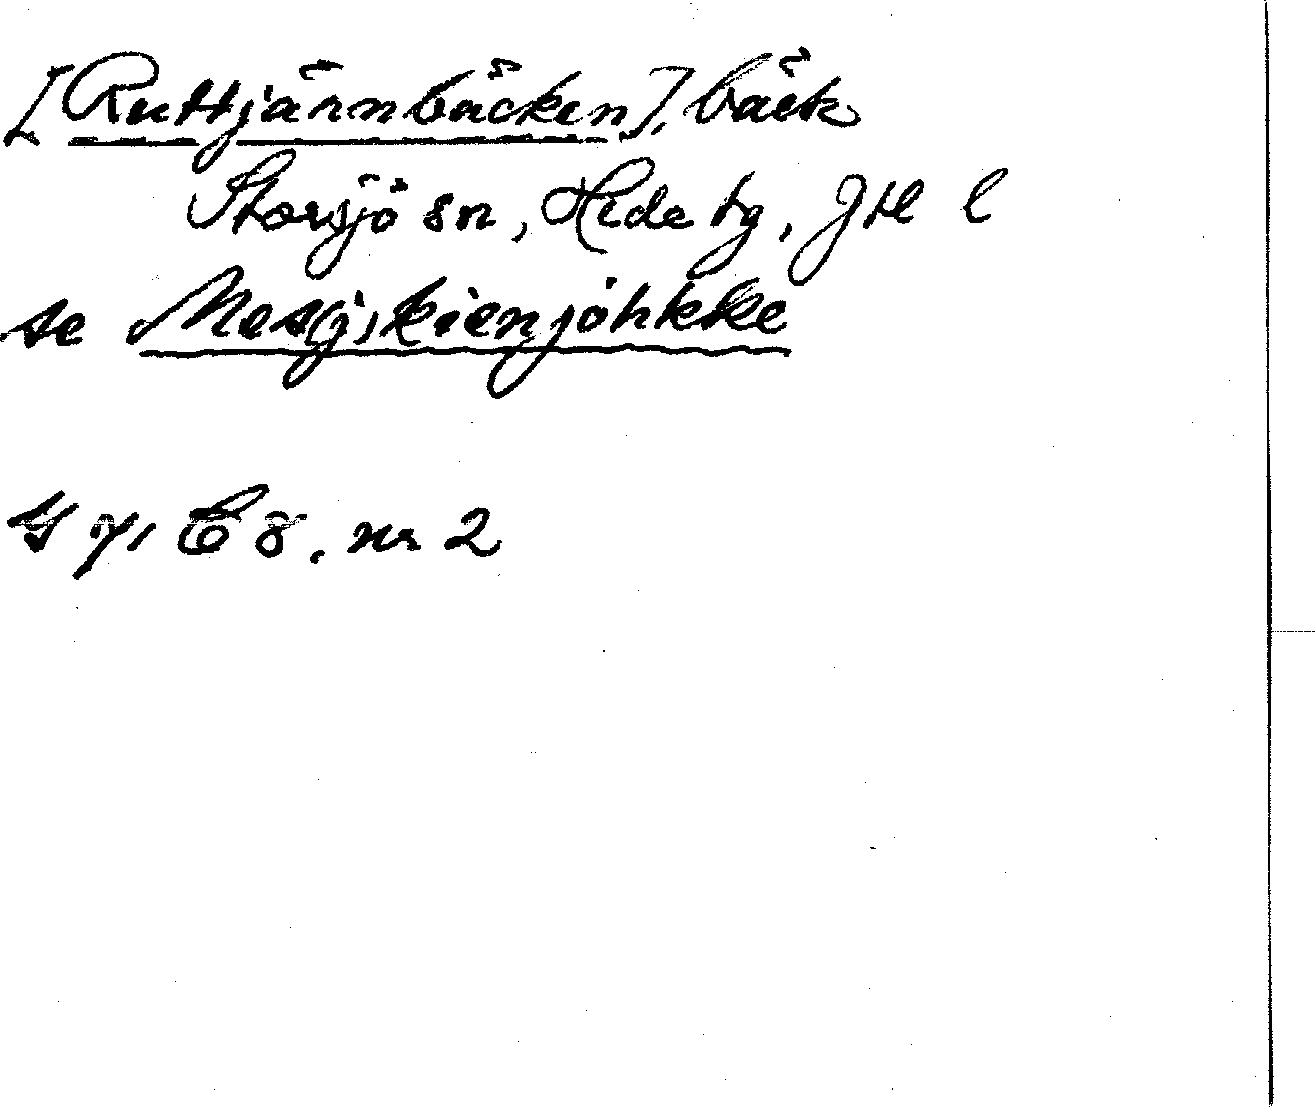 [Ruttjärnbäcken], bäck
Storsjö sn, Hede tg, Jtl l
se Mesg,kienjöhkke
nr 2